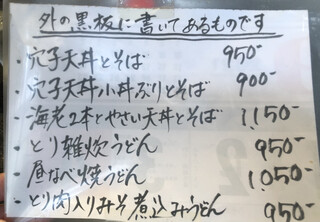 外の黒板に書いてあるものです
・穴子天丼とそば 950-
・穴子天丼小丼ぶりとそば 900-
・海老2本とやさい天丼とそば 1,150-
・とり雑炊うどん 950-
・昼なべ焼うどん 1,050-
・とり肉入りみそ煮込みうどん 950-